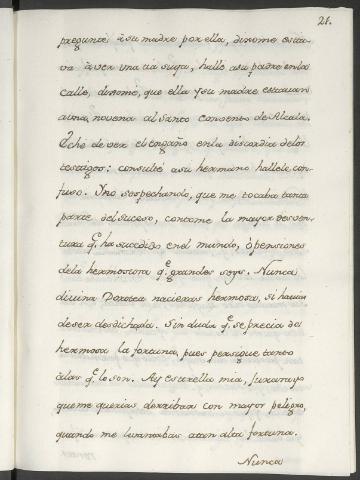 21.
pregunté à su madre por ella, dixome estava
và à ver una tia suya, hallè asu padre en la
calle, dixome, que ella y su madre estavan
a una novena al santo convento de Alcala.
Eché de ver el engaño en la discordia delos
testigos: consulté asu hermano hallele con-
fuso. Y no sospechando, que me tocaba tanta
parte del suceso, contome la mayor desven-
tura q.e ha succedido en el mundo, ò pensiones
dela hermosura q.e grandes soys. Nunca
divina Dorotea nacieras hermosa, si havias
de ser desdichada. Sin duda q.e se precia de
hermosa la fortuna, pues persigue tanto
à las q.e lo son. Ay estrella mia,
que me querias derribar con mayor peligro,
quando me levantabas a tan alta fortuna.
Nunca